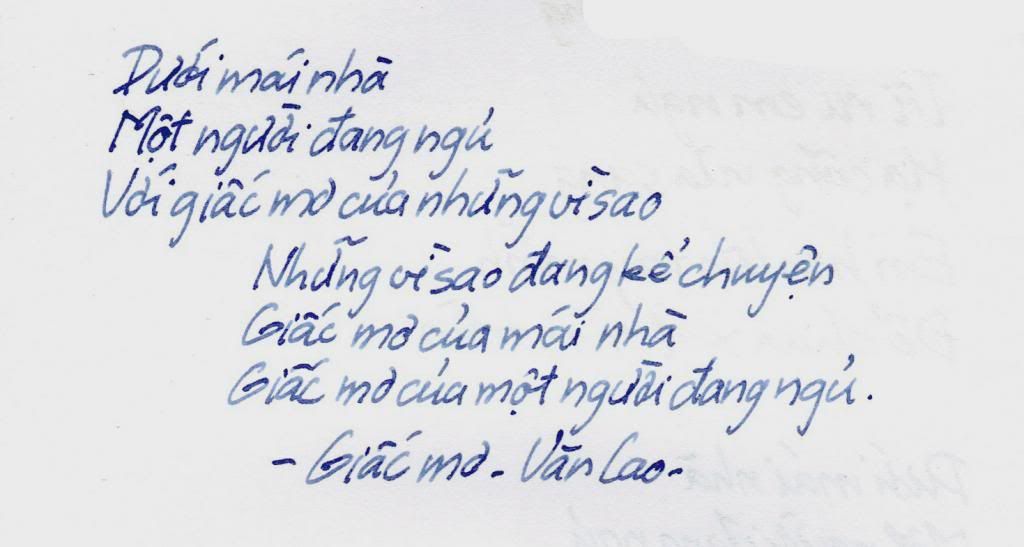 Dưới mái nhà
Một người đang ngủ
Với giấc mơ của những vì sao
Những vì sao đang kể chuyện
Giấc mơ của mái nhà
Giấc mơ của một người đang ngủ.
- Giấc mơ - Văn Cao -